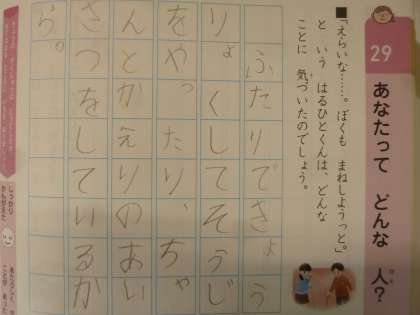 29
あなたって どんな 人?
■「えらいな……。ぼくも まねしようっと。」
と いう はるひとくんは、どんな
ことに 気づいたのでしょう。
ふたりできょう
りょくしてそうじ
をやったり、ちゃ
んとかえりのあい
さつをしているか
ら。
しっかり
かんがえた